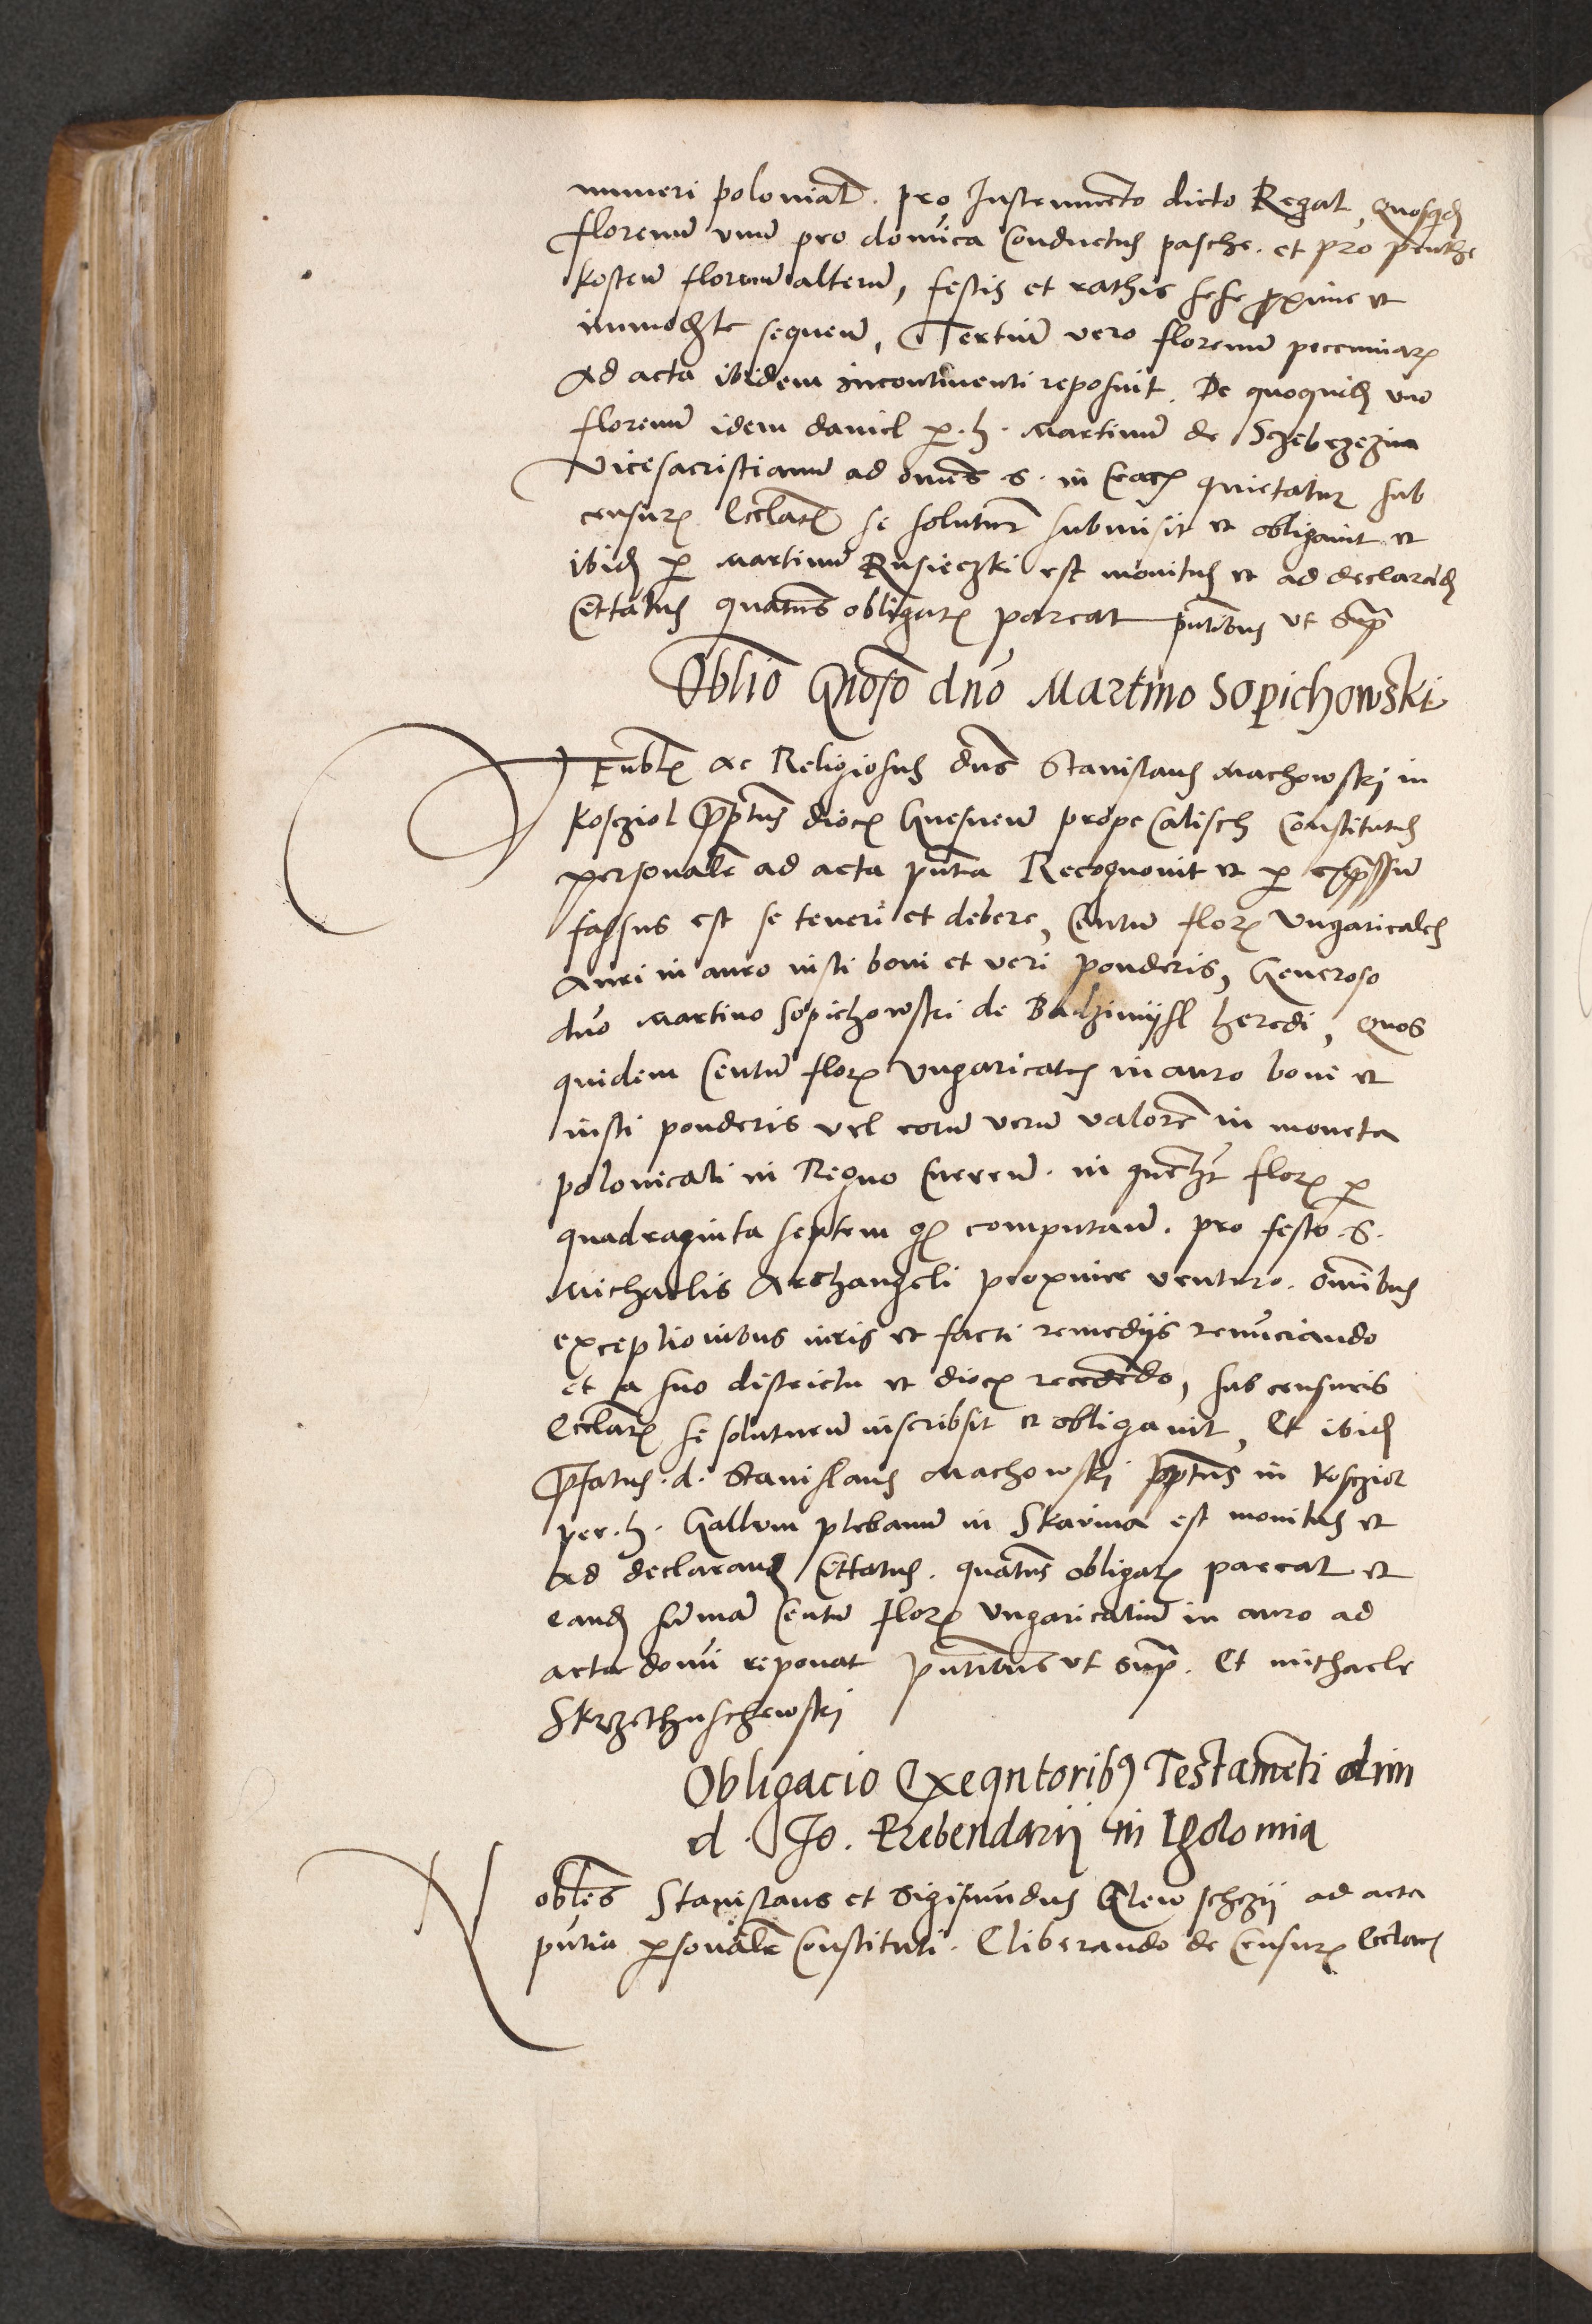 numeri polonicat. pro Instrumento dicto Regal, quosqd
florenu vnu pro domica Conductus pasche. et pro penthe
kosteu florenu alteru, festis et rathis sese proxime et
immedte sequen, Tertiu vero florenu peccuniar
ad acta ibidem incontinenti reposuit. De quoquid vno
florenu idem daniel p. h. Martinu de Sczebrzezin
Vicesacristianu ad omes s. in Crac quietatur sub
censur Ecclat se solutur submisit et obligauit et
ibid p Martinu Rusieczki est monitus et ad declarad
Cittatus quatus obligat pareat pntibus vt supra
Oblio Gnoso dno Martino Sopichowski
ac Religiosus dns Stanislaus Machowski in
Kosczol ppttus dioc Gnesnen prope Calisch Constitutus
personale ad acta pntia Recognouit et p expssu
fassus est se teneri et debere, Centu flor Vngaricales
Auri in auro iusti boni et veri ponderis, Generoso
dno Martino Sopichowski de Badzimijsl heredi, quos
quidem Centu flor Vngaricales in auro boni et
iusti ponderis vel eoru veru valore in moneta
polonicali in Regno Curren. in quelibt flor p
quadraginta septem gs computan. pro festo. S.
Michaelis Archangeli proxime venturo. omnibus
exceptionibus iuris et facti remedijs renuciando
et a suo districtu et dioc recedendo, sub censuris
Ecclat se soluturum inscribsit et obligauit, Et ibid
Prefatus. d. Stanislaus Machowski pptus in Kosczol
per. h. Gallum plebanu in Skarina est monitus et
ad declarand Cittatus. quatus obligat pareat et
eand suma Centu flor Vngaricaliu in auro ad
acta domi reponat pntibus vt supra. Et michaele
Skrzethuschewski
Obligacio Exequtoribus Testameti olim
d. Jo. Prebendarij in Igolomia
Nobles Stanislaus et Sigismundus ad acta
pntia psonale Constituti. Cliberando de Censur Ecclat